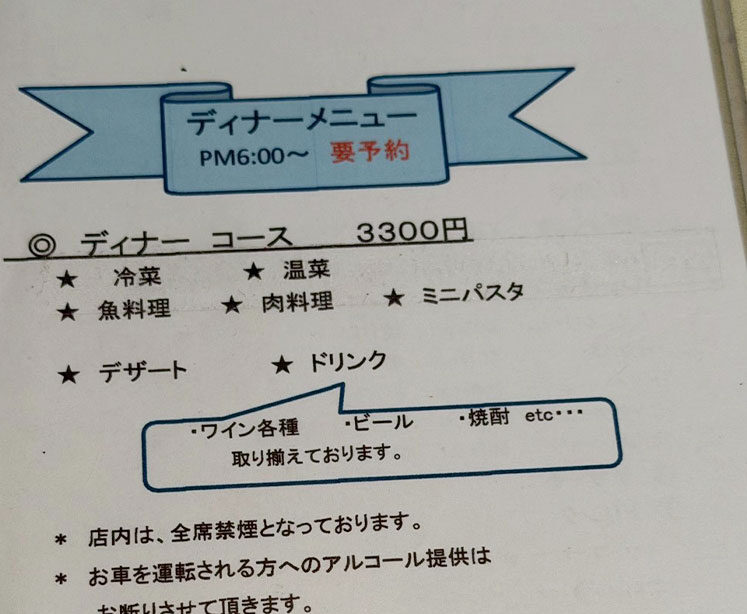 ディナーメニュー
PM6:00～ 要予約
◎ ディナー コース 3300円
★ 冷菜 ★ 温菜
★ 魚料理 ★ 肉料理 ★ ミニパスタ
★ デザート ★ ドリンク
・ワイン各種 ・ビール ・焼酎 etc・・・
取り揃えております。
* 店内は、全席禁煙となっております。
* お車を運転される方へのアルコール提供は
お断りさせて頂きます。